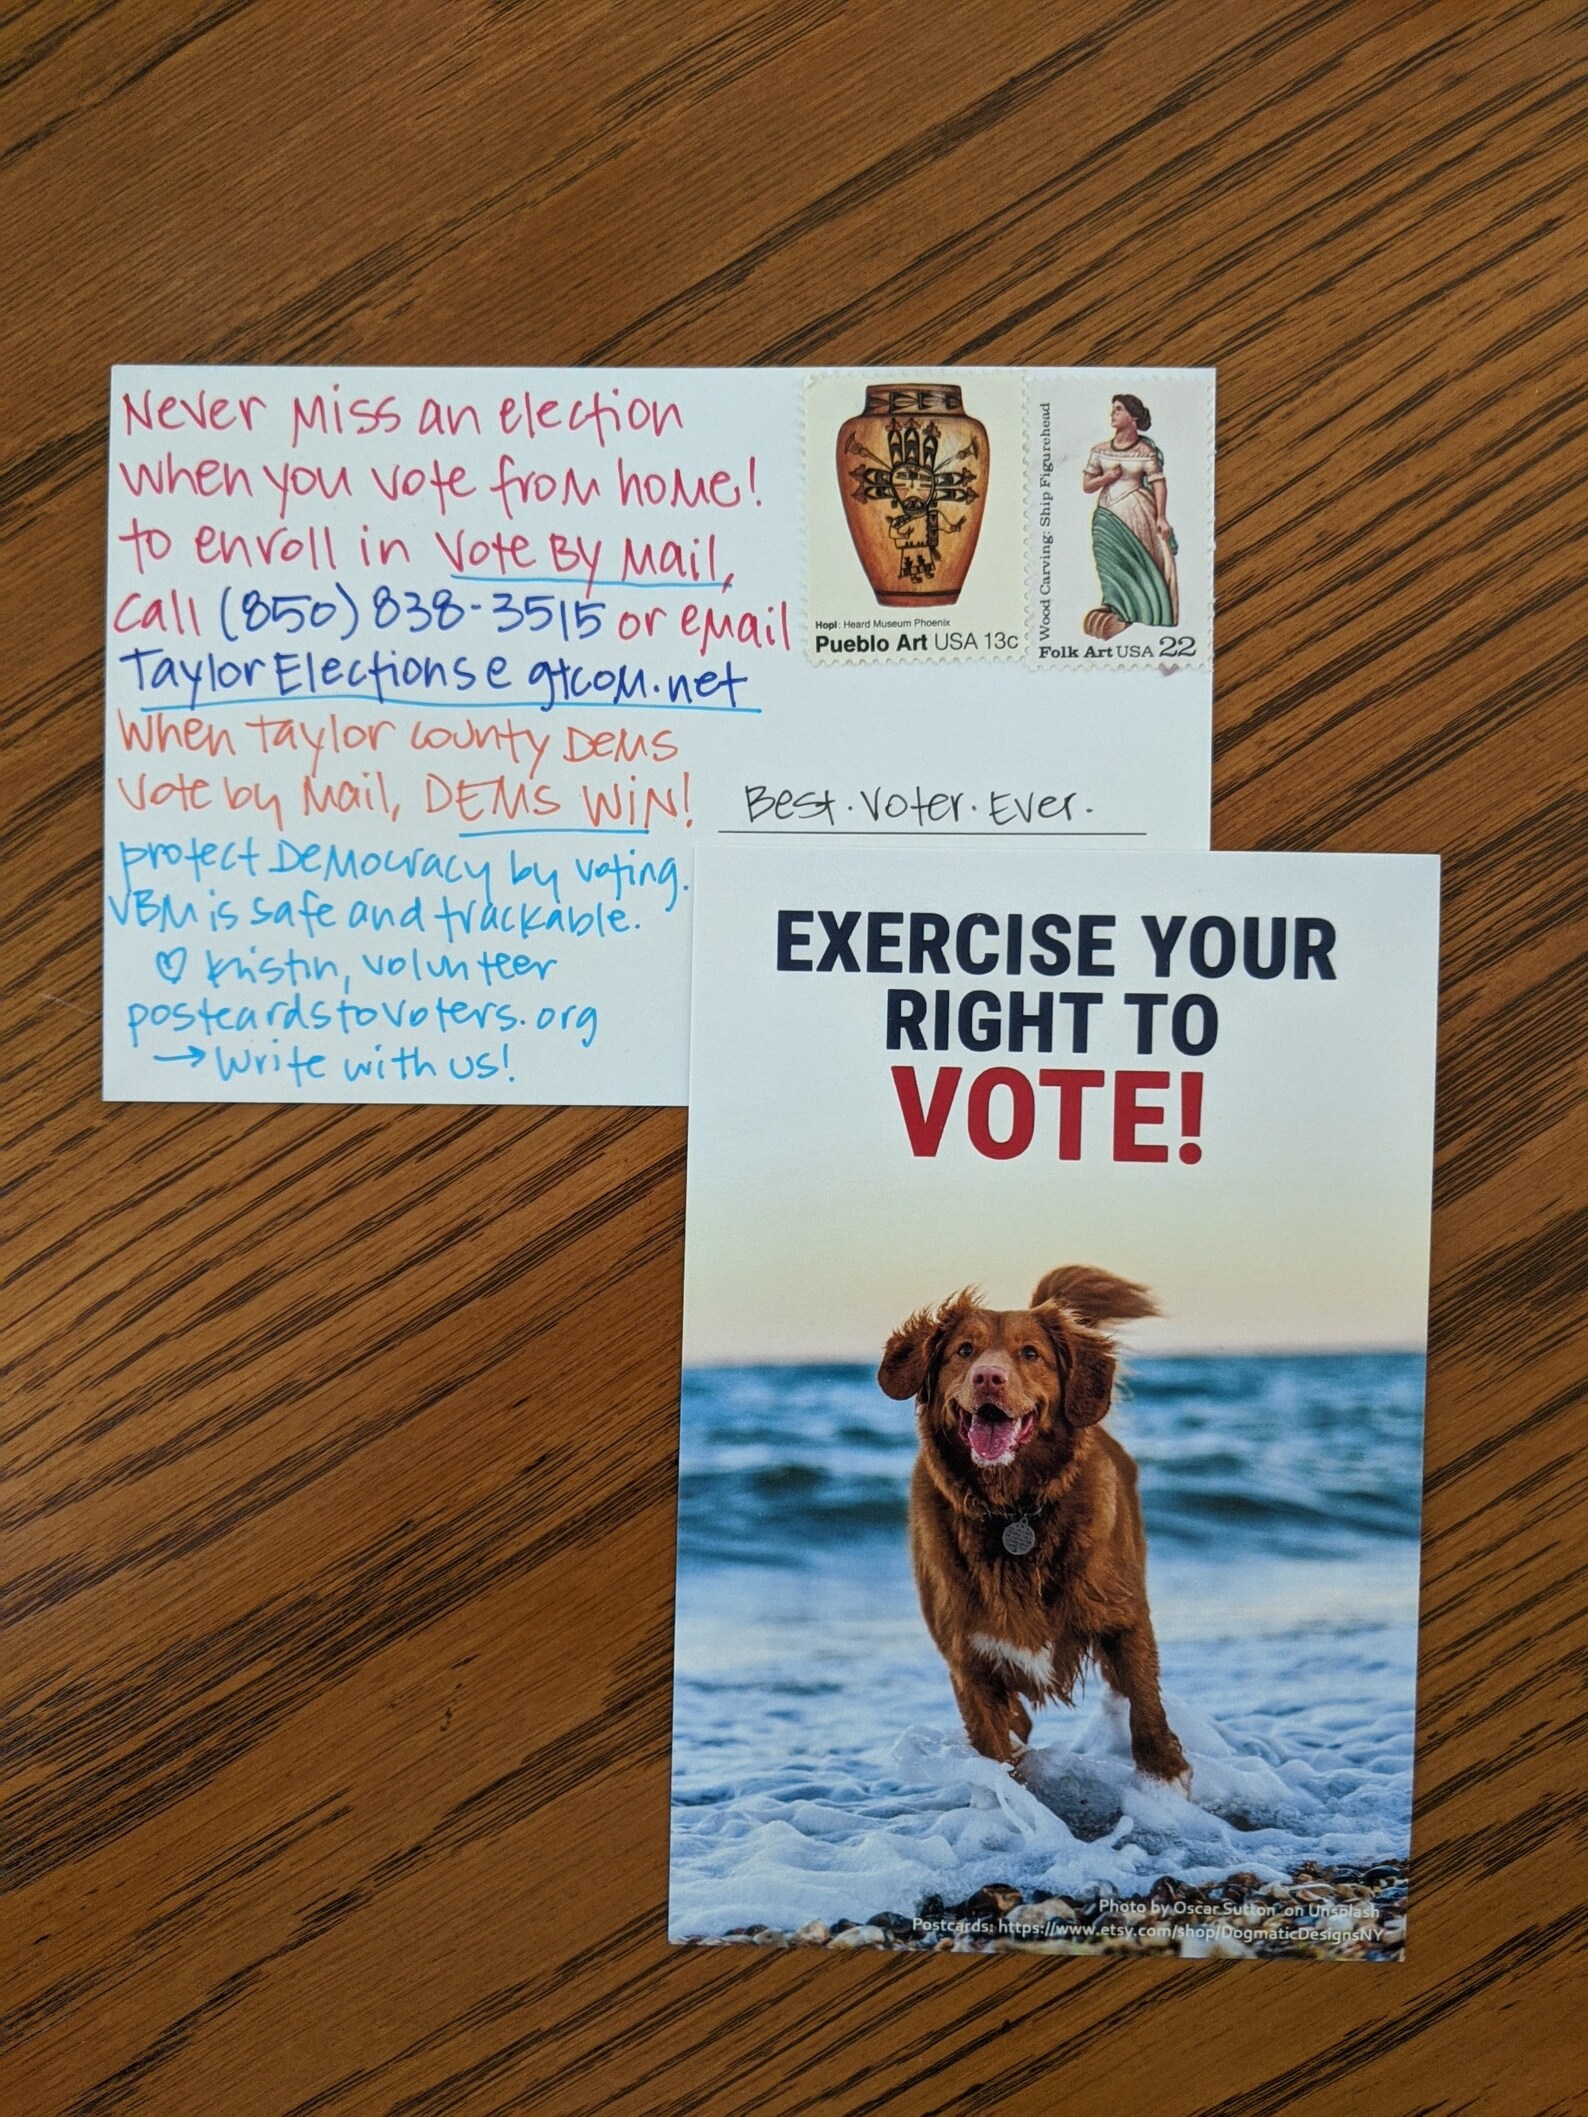 Never Miss an election
when you vote from home!
to enroll in Vote By Mail,
call (850) 838-3515 or email
TaylorElections@gtcom.net
When Taylor County Dems
Vote by Mail, DEMS WIN!
protect Democracy by voting.
VBM is safe and trackable.
♡ Kristin, volunteer
postcardstovoters.org
→ Write with us!
Hopi: Heard Museum Phoenix
Pueblo Art USA 13c
Wood Carving: Ship Figurehead
Folk Art USA 22
Best. Voter. Ever.
EXERCISE YOUR
RIGHT TO
VOTE!
Photo by Oscar Sutton on Unsplash
Postcards: https://www.etsy.com/shop/DogmaticDesignsNY